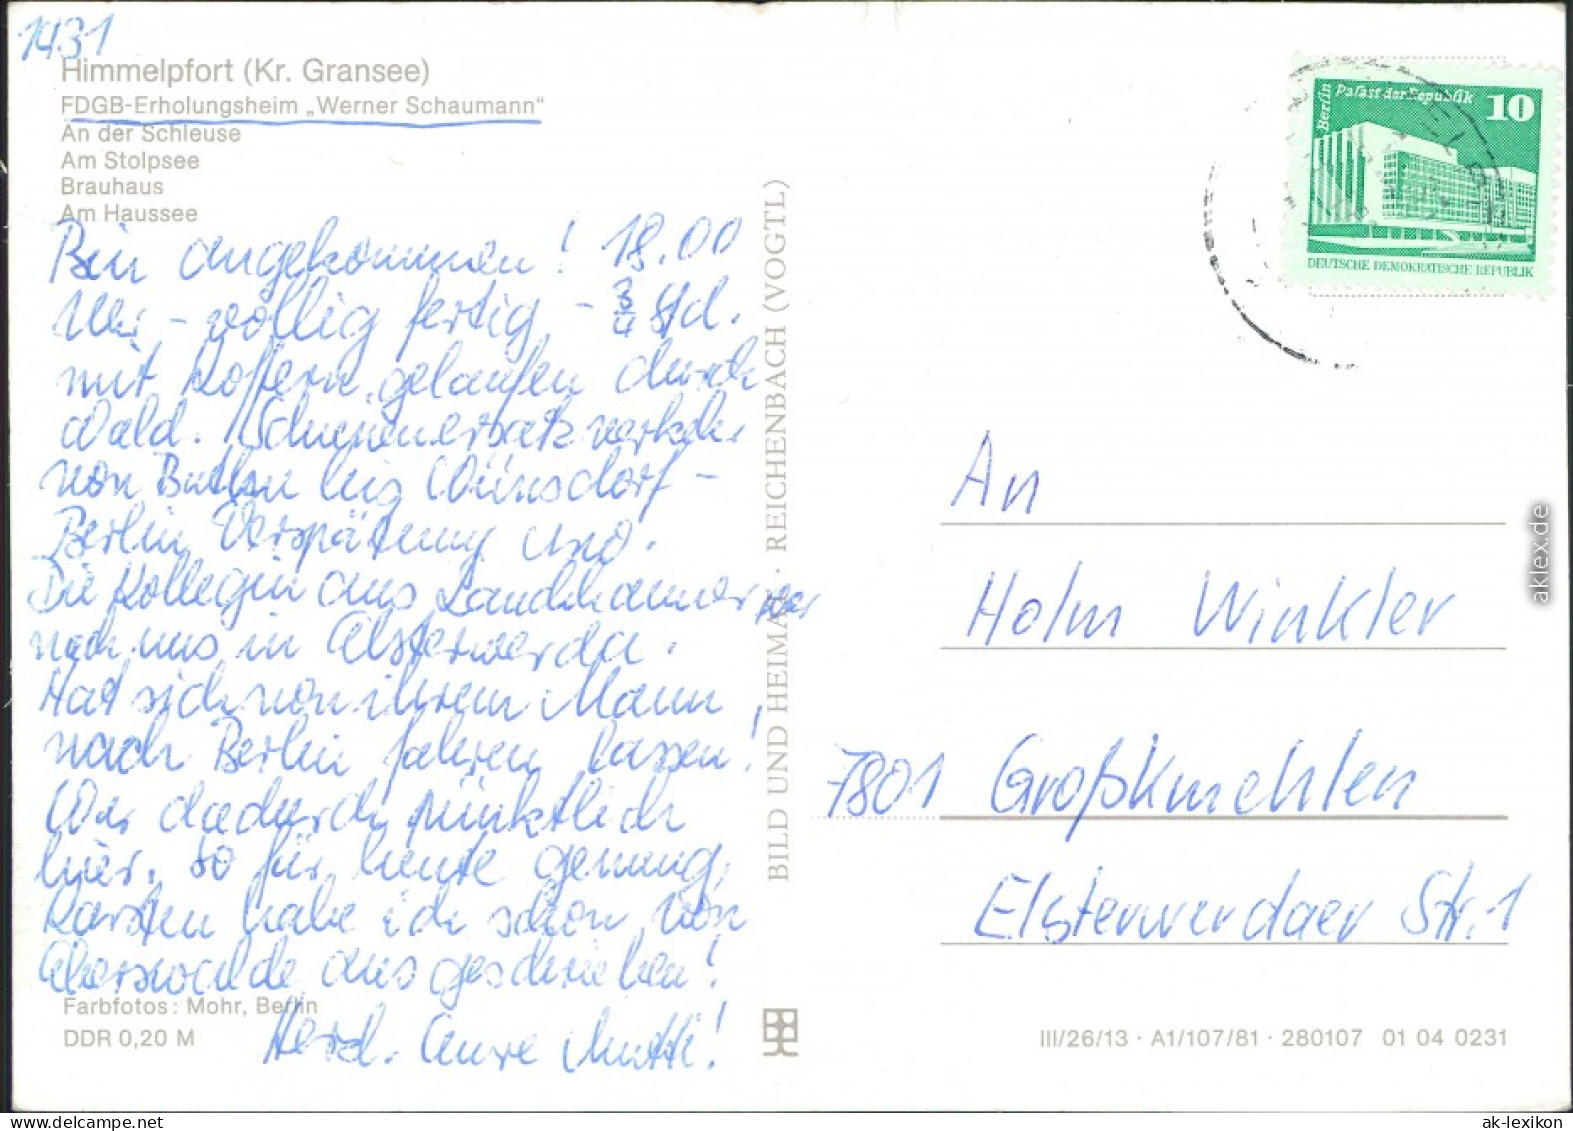 1431
Himmelpfort (Kr. Gransee)
FDGB-Erholungsheim „Werner Schaumann“
An der Schleuse
Am Stolpsee
Brauhaus
Am Haussee
Bin angekommen! 18.00
Uhr – völlig fertig – 3/4 Std.
mit Koffern gelaufen durch
Wald. Schienenersatzverkehr
von bis Wünsdorf –
Berlin Verspätung und.
Die Kollegin aus war
nach uns in Elsterwerda.
Hat sich von ihrem Mann
nach Berlin fahren lassen!
War dadurch pünktlich
hier. So für heute genung,
Karsten habe ich schon von
Eberswalde aus geschrieben!
Herzl. Eure Mutti!
Farbfotos: Mohr, Berlin
DDR 0,20 M
BILD UND HEIMAT · REICHENBACH (VOGTL)
Berlin Palast der Republik 10
DEUTSCHE DEMOKRATISCHE REPUBLIK
An
Holm Winkler
7801 Großkmehlen
Elsterwerdaer Str. 1
III/26/13 · A1/107/81 · 280107 01 04 0231
aklex.de
ak-lexikon